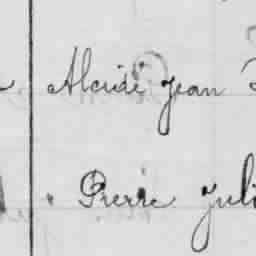 Alcidé Jean
" Pierre Juli